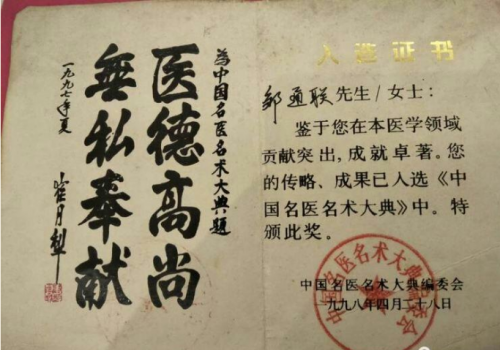 为中国名医名术大典题
医德高尚
無私奉献
一九九七年夏
崔月犁
入选证书
邹通联先生/女士：
鉴于您在本医学领域
贡献突出，成就卓著。您
的传略、成果已入选《中
国名医名术大典》中。特
颁此奖。
中国名医名术大典编委会
一九九八年四月二十八日
中国名医名术大典编委会